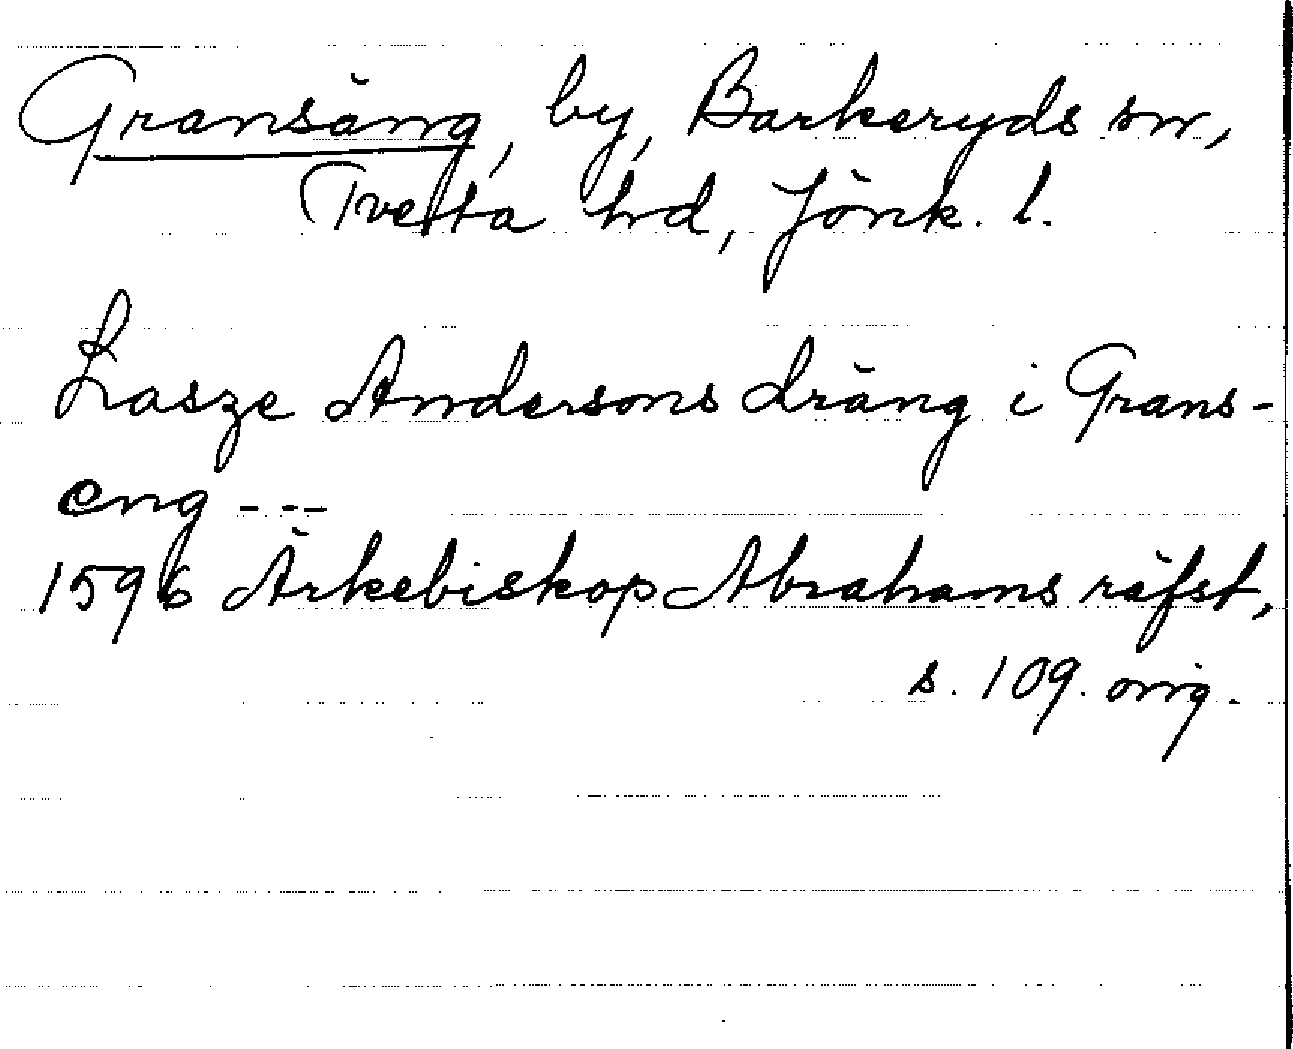 Gransäng, by, Barkeryds sn,
Tveta hd, Jönk. l.
Lasze Andersons dräng i Grans-
eng ---
1596 Ärkebiskop Abrahams räfst,
s. 109. orig.